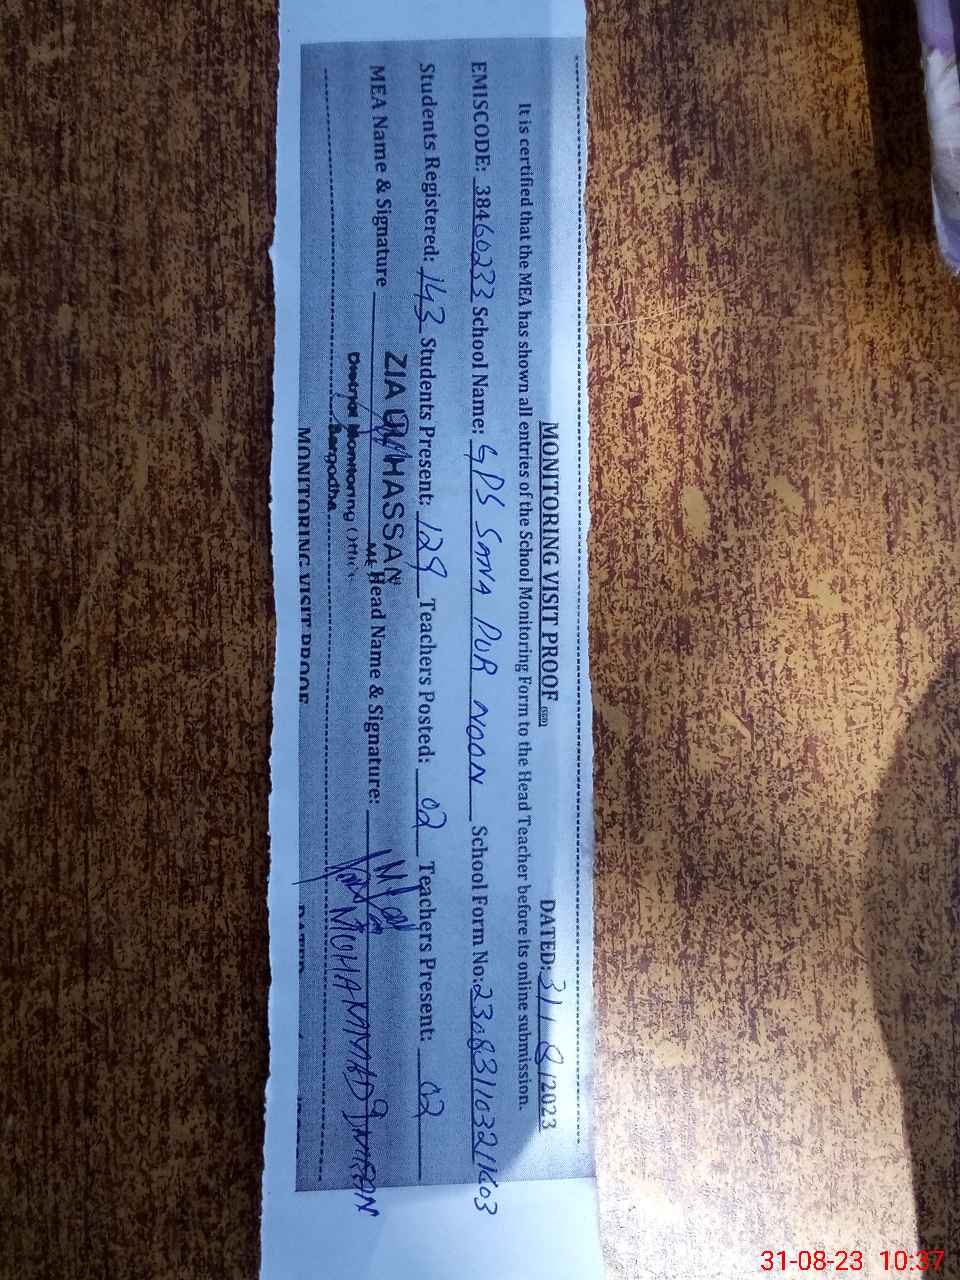 MONITORING VISIT PROOF (SED) DATED: 31/8/2023
It is certified that the MEA has shown all entries of the School Monitoring Form to the Head Teacher before its online submission.
EMISCODE: 38460233 School Name: GPS SANA PUR NOON School Form No: 23083110321603
Students Registered: 143 Students Present: 129 Teachers Posted: 02 Teachers Present: 02
MEA Name & Signature ZIA UL HASSAN Head Name & Signature: MUHAMMAD IMRAN
District Monitoring Office
Sargodha
MONITORING VISIT PROOF DATED
31-08-23 10:37